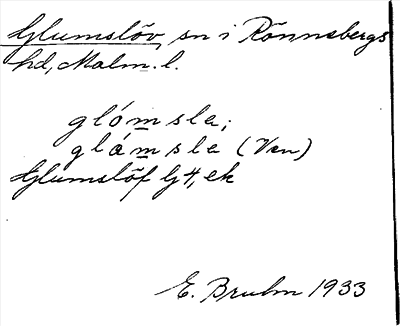 Glumslöv, sn i Rönnebergs
hd, Malm. l.
glómsle;
glámsle (Ven)
Glumslöf Gj4, ek
E. Bruhn 1933